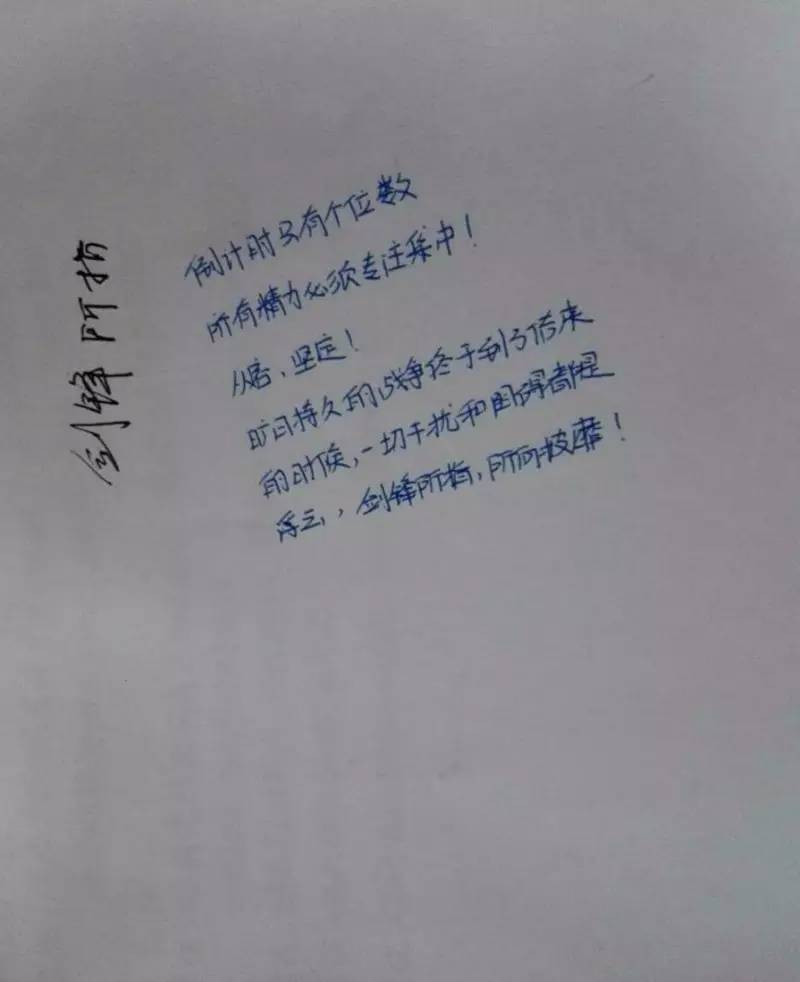 剑锋所指
倒计时只有个位数
所有精力必须专注集中！
从容、坚定！
旷日持久的战争终于到了结束
的时候，一切干扰和困碍都是
浮云，剑锋所指，所向披靡！